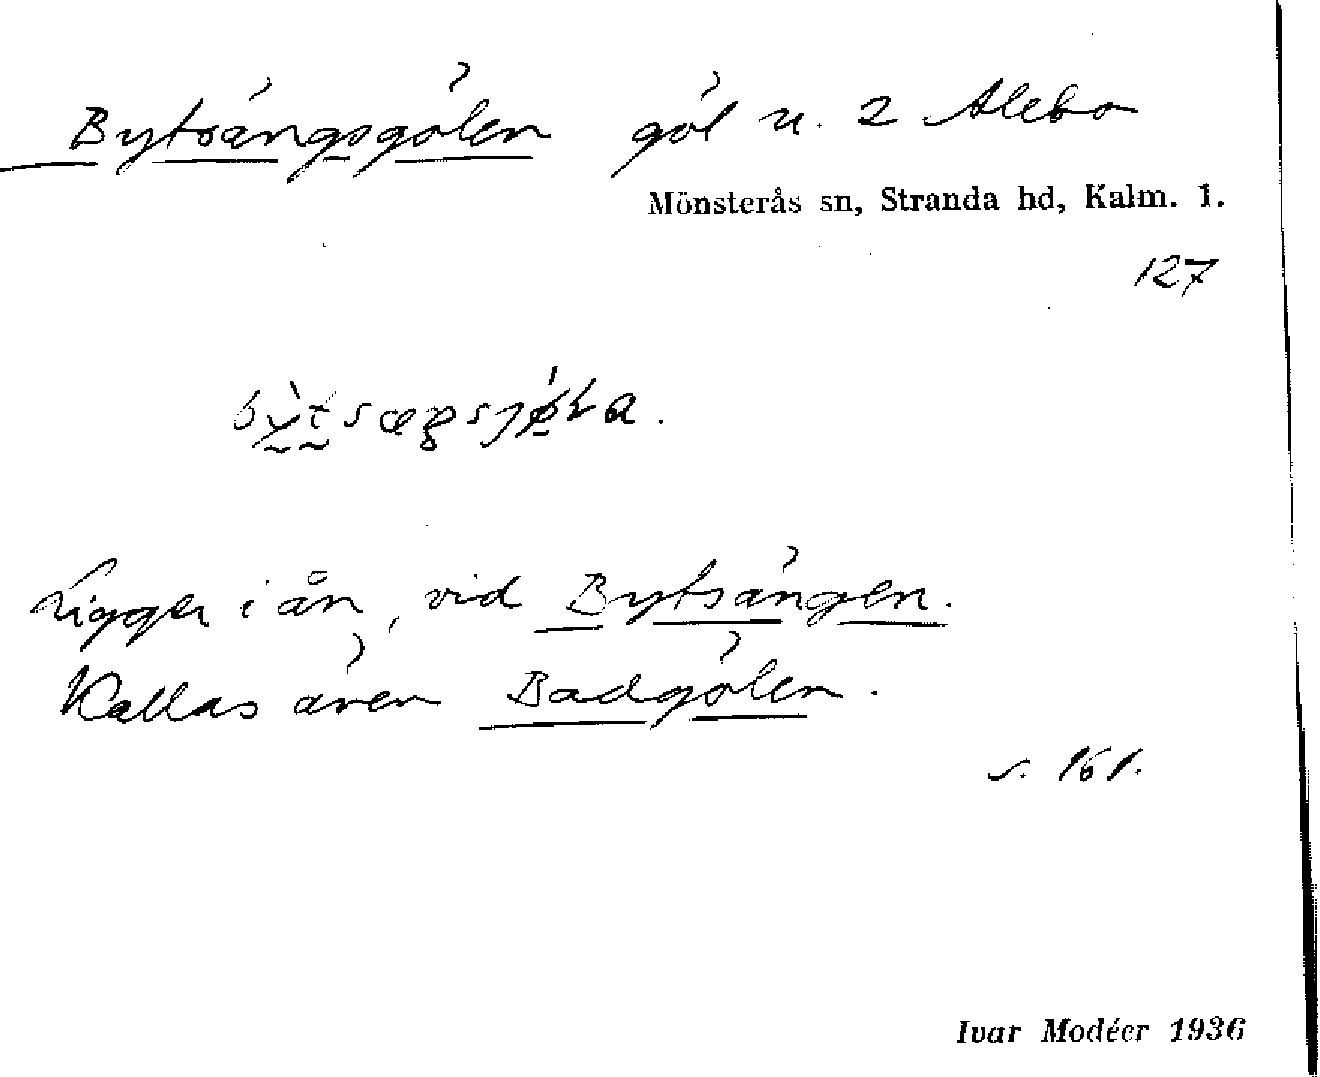 Bytsängsgölen göl u. 2 Alebo
Mönsterås sn, Stranda hd, Kalm. l.
127
Ligger i ån, vid Bytsängen.
Kallas även Badgölen.
s. 161.
Ivar Modéer 1936